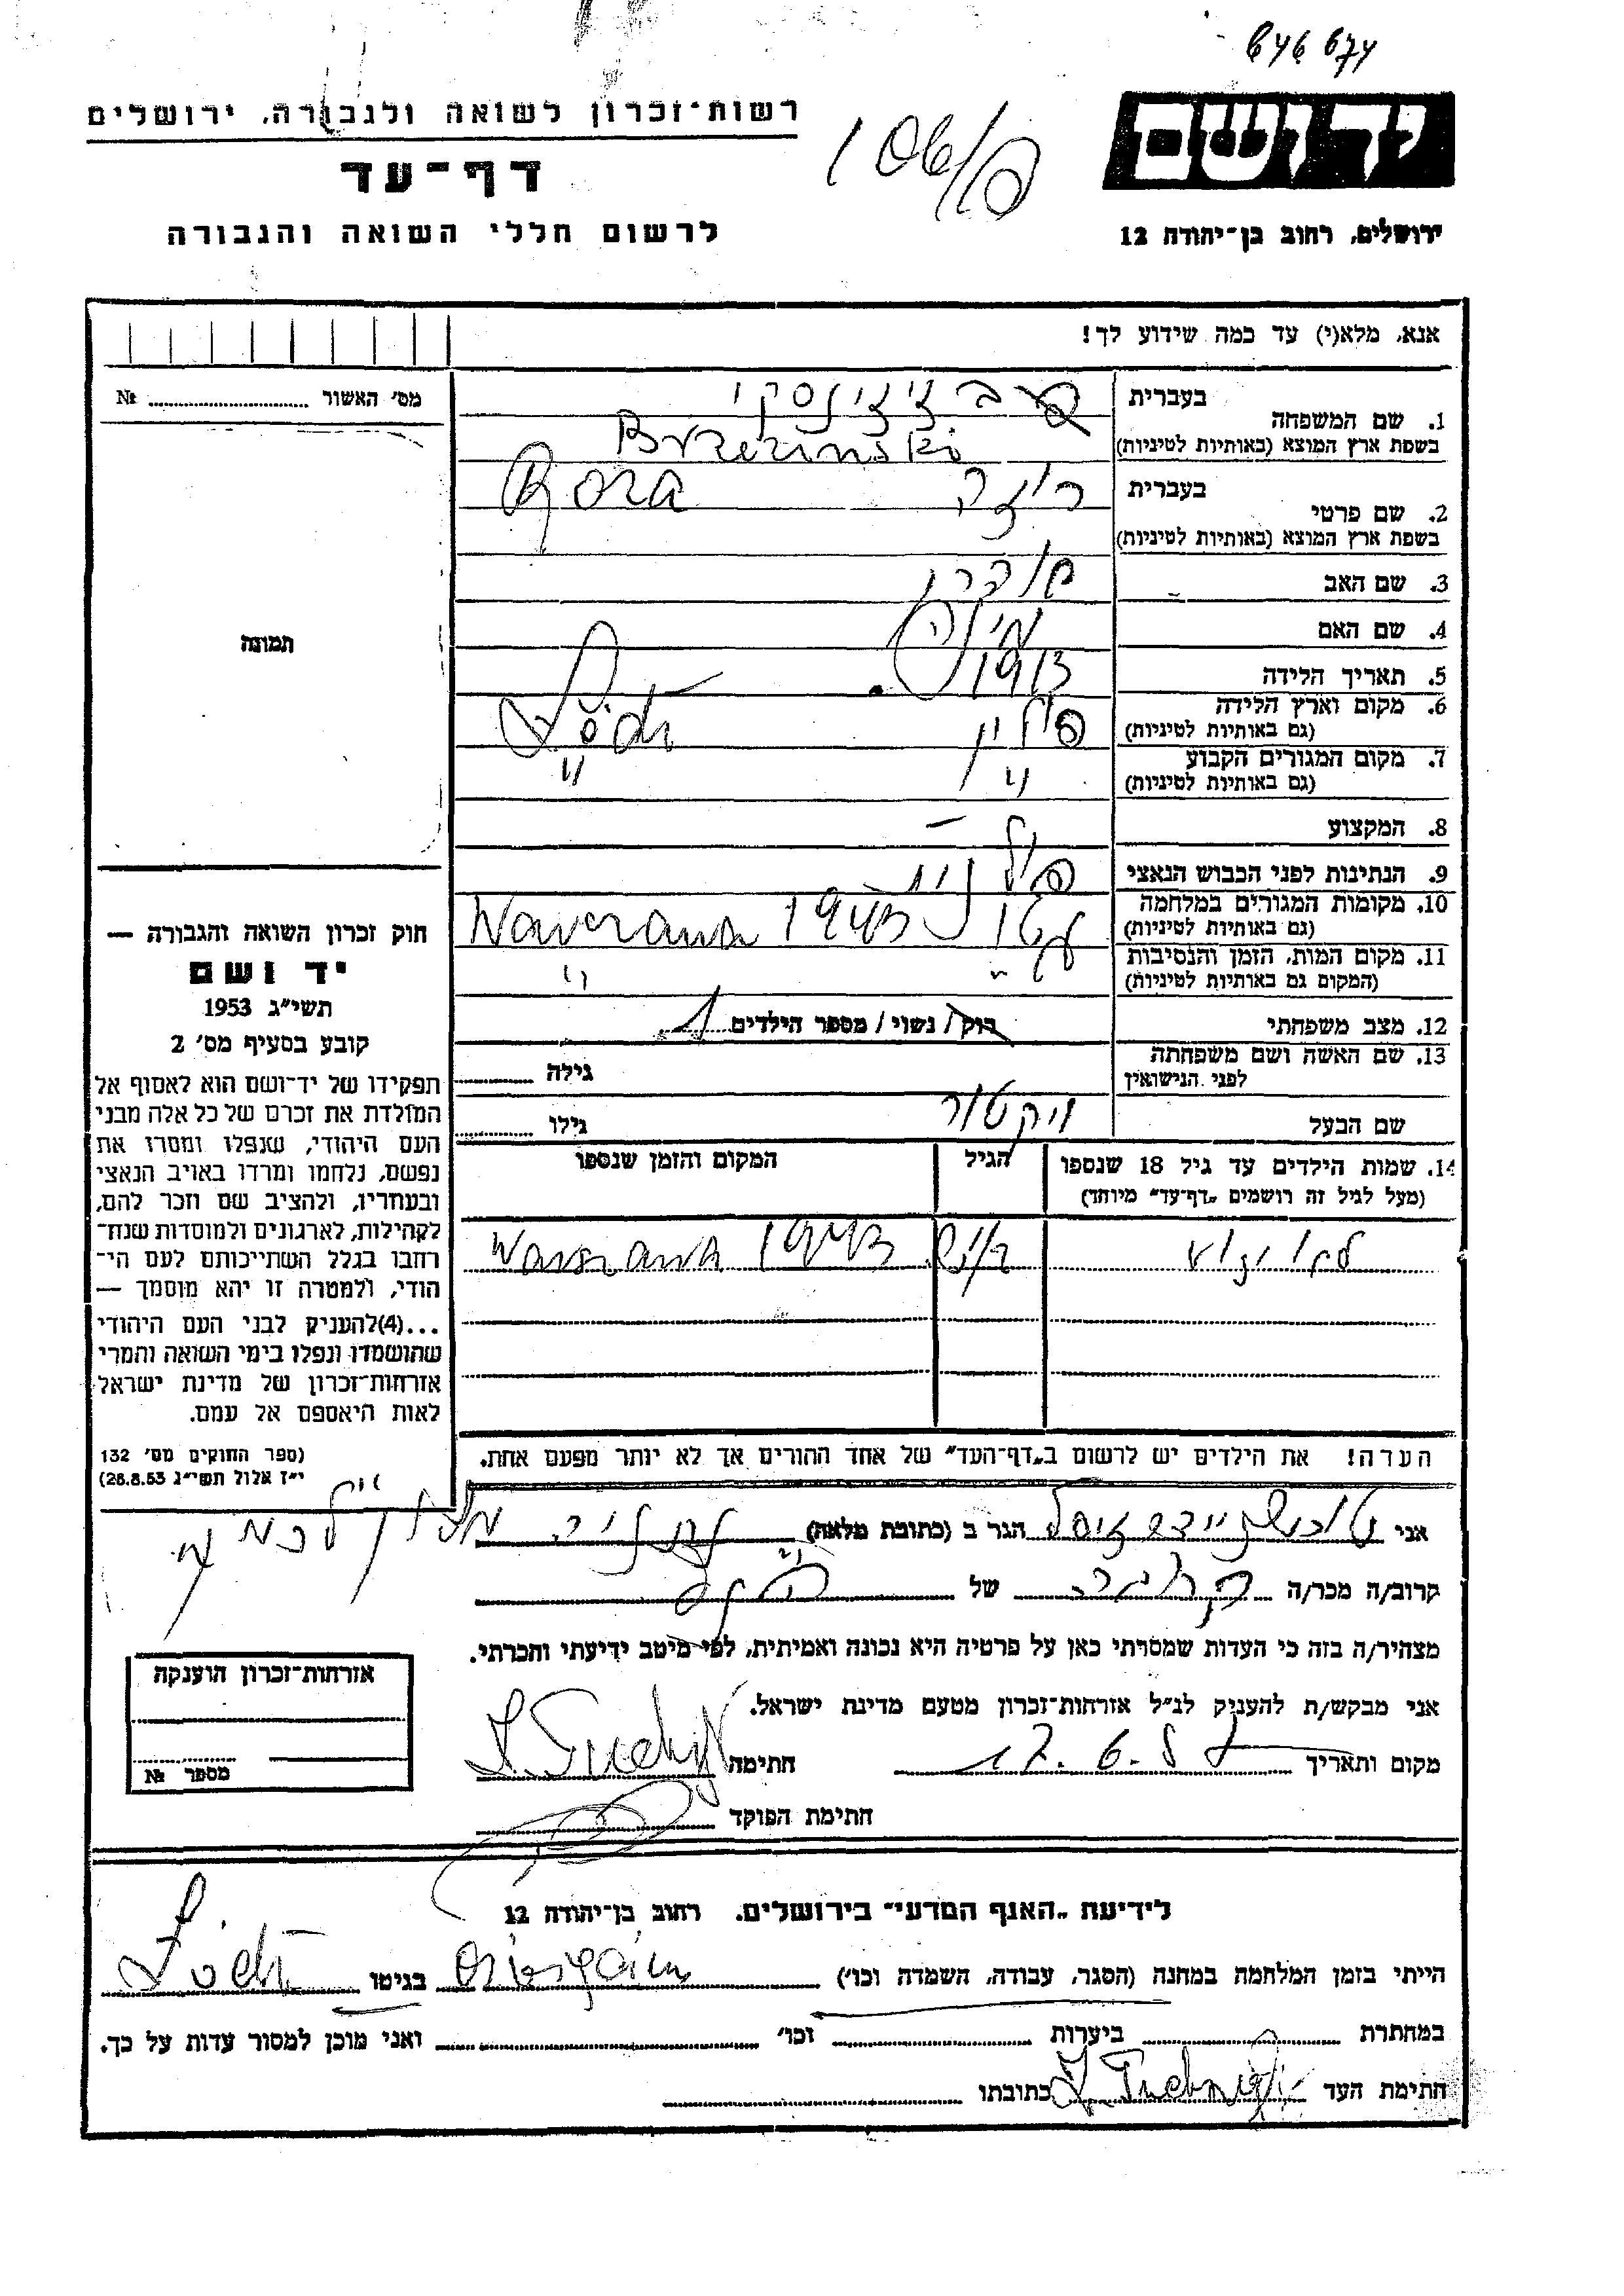 646 674
רשות־זכרון לשואה ולגבורה, ירושלים
106/
דף־עד
לרשום חללי השואה והגבורה
יד ושם
ירושלים, רחוב בן־יהודה 12
אנא, מלא(י) עד כמה שידוע לך!
מס׳ האשור № 
בעברית
1. שם המשפחה
בשפת ארץ המוצא (באותיות לטיניות) Brzezinski
בעברית רוזה
2. שם פרטי Roza
בשפת ארץ המוצא (באותיות לטיניות)
3. שם האב
4. שם האם
5. תאריך הלידה 1913
6. מקום וארץ הלידה פולין Łódź
(גם באותיות לטיניות)
7. מקום המגורים הקבוע " "
(גם באותיות לטיניות)
8. המקצוע —
9. הנתינות לפני הכבוש הנאצי פולנית
10. מקומות המגורים במלחמה גטו 1943 Warszawa
(גם באותיות לטיניות)
11. מקום המות, הזמן והנסיבות " "
(המקום גם באותיות לטיניות)
12. מצב משפחתי רוק/ נשוי/ מספר הילדים 1
13. שם האשה ושם משפחתה
לפני הנישואין גילה
שם הבעל ויקטור גילו
תמונה
14. שמות הילדים עד גיל 18 שנספו הגיל המקום והזמן שנספו
(מעל לגיל זה רושמים „דף־עד״ מיוחד)
1943 Warszawa
הערה! את הילדים יש לרשום ב„דף־העד״ של אחד ההורים אך לא יותר מפעם אחת.
חוק זכרון השואה והגבורה —
יד ושם
תשי״ג 1953
קובע בסעיף מס׳ 2
תפקידו של יד־ושם הוא לאסוף אל
המולדת את זכרם של כל אלה מבני
העם היהודי, שנפלו ומסרו את
נפשם, נלחמו ומרדו באויב הנאצי
ובעוזריו, ולהציב שם וזכר להם,
לקהילות, לארגונים ולמוסדות שנח־
רחבו בגלל השתייכותם לעם הי־
הודי, ולמטרה זו יהא מוסמך —
...(4)להעניק לבני העם היהודי
שהושמדו ונפלו בימי השואה והמרי
אזרחות־זכרון של מדינת ישראל
לאות היאספם אל עמם.
(ספר החוקים מס׳ 132
י״ז אלול תשי״ג 28.8.53)
אני הגר ב (כתובת מלאה) נתניה
קרוב/ה מכר/ה של
מצהיר/ה בזה כי העדות שמסרתי כאן על פרטיה היא נכונה ואמיתית, לפי מיטב ידיעתי והכרתי.
אני מבקש/ת להעניק לנ״ל אזרחות־זכרון מטעם מדינת ישראל.
מקום ותאריך 17.6. חתימה
חתימת הפוקד
אזרחות־זכרון הוענקה
מספר №
לידיעת „האגף המדעי״ בירושלים, רחוב בן־יהודה 12
הייתי בזמן המלחמה במחנה (הסגר, עבודה, השמדה וכו׳) Oświęcim בגיטו Łódź
במחתרת ביערות וכו׳ ואני מוכן למסור עדות על כך.
חתימת העד כתובתו